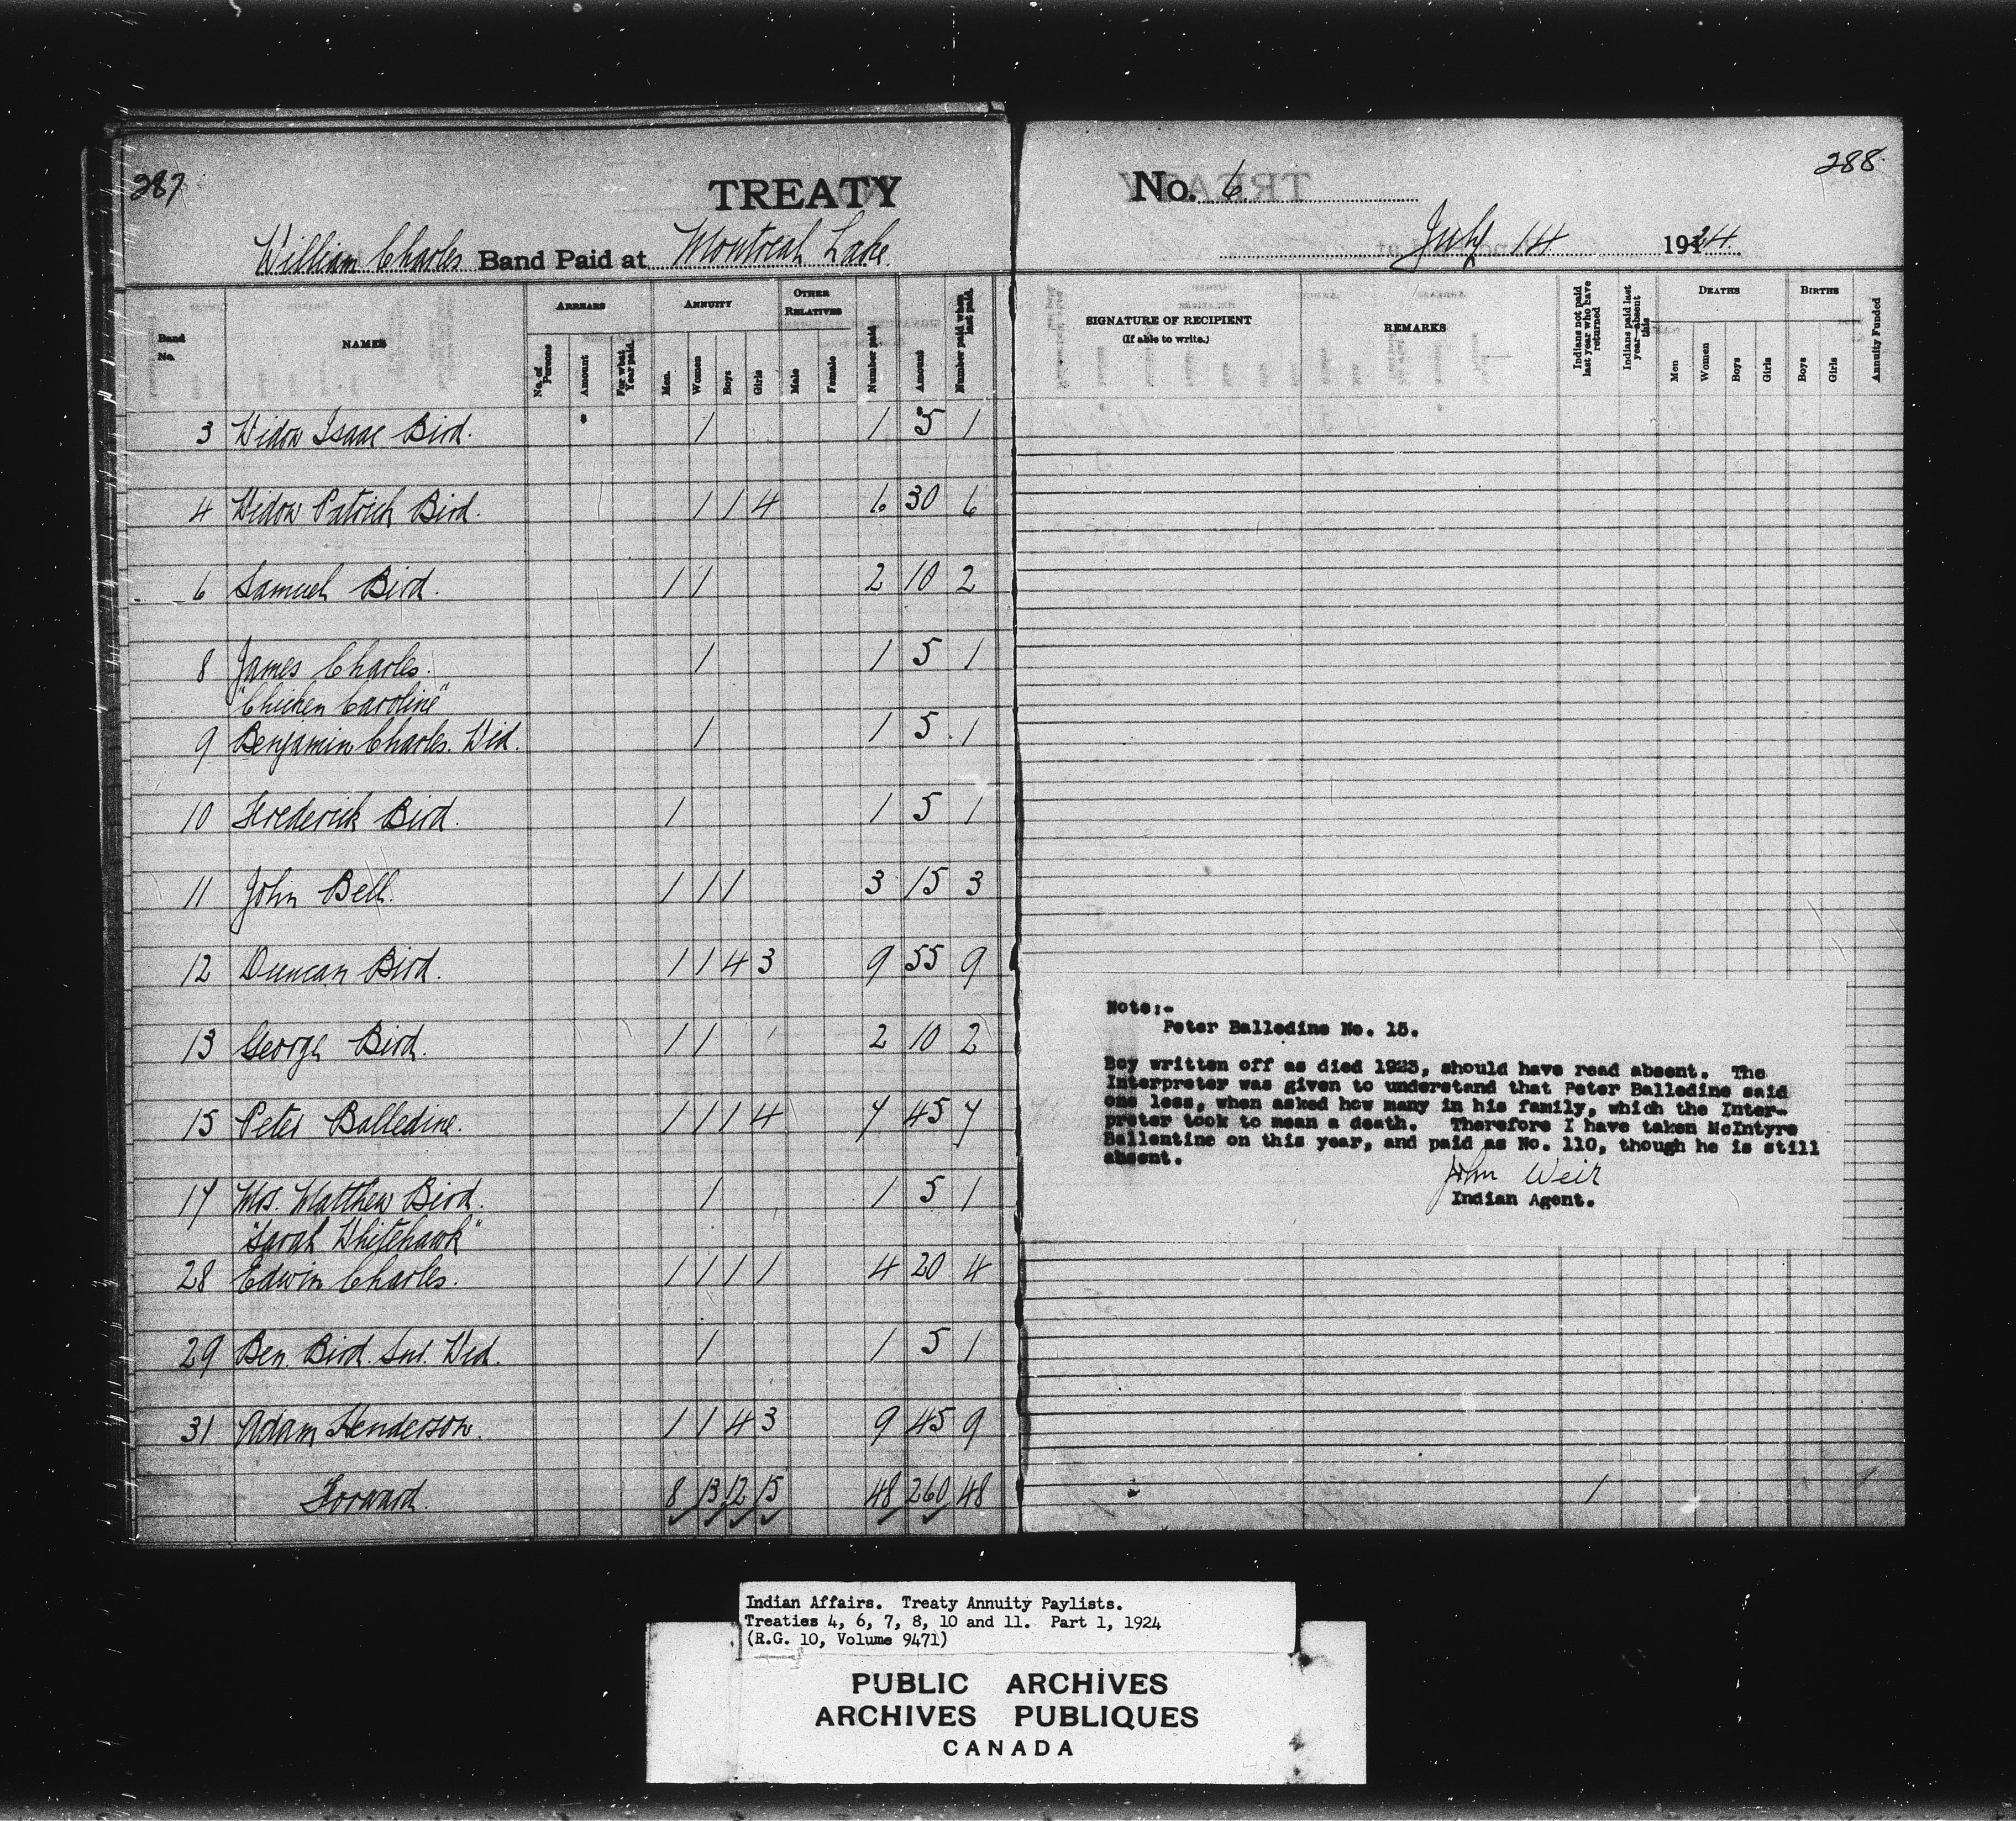 287
TREATY
William Charles Band Paid at Montreal Lake.
Band No. NAMES ARREARS No. of Persons Amount For what Year paid. ANNUITY Men. Women Boys Girls OTHER RELATIVES Male Female Number paid Amount Number paid when last paid.
3 Widow Isaac Bird. 1 1 5 1
4 Widow Patrick Bird. 1 1 4 6 30 6
6 Samuel Bird. 1 1 2 10 2
8 James Charles. 1 1 5 1
"Chicken Caroline"
9 Benjamin Charles. Wid. 1 1 5 1
10 Frederick Bird. 1 1 5 1
11 John Bell. 1 1 1 3 15 3
12 Duncan Bird. 1 1 4 3 9 55 9
13 George Bird. 1 1 2 10 2
15 Peter Balledine. 1 1 1 4 7 45 7
17 Mrs. Matthew Bird. 1 1 5 1
"Sarah Whitehawk"
28 Edwin Charles. 1 1 1 1 4 20 4
29 Ben. Bird. Snr. Wid. 1 1 5 1
31 Adam Henderson. 1 1 4 3 9 45 9
Forward. 8 13 12 15 48 260 48
288
No. 6
July 14 1924.
SIGNATURE OF RECIPIENT (If able to write.) REMARKS Indians not paid last year who have returned Indians paid last year—absent this DEATHS Men Women Boys Girls BIRTHS Boys Girls Annuity Funded
Note:-
Peter Balledine No. 15.
Boy written off as died 1923, should have read absent. The
Interpreter was given to understand that Peter Balledine said
one less, when asked how many in his family, which the Inter-
preter took to mean a death. Therefore I have taken McIntyre
Ballentine on this year, and paid as No. 110, though he is still
absent.
John Weir
Indian Agent.
1 1
Indian Affairs. Treaty Annuity Paylists.
Treaties 4, 6, 7, 8, 10 and 11. Part 1, 1924
(R.G. 10, Volume 9471)
PUBLIC ARCHIVES
ARCHIVES PUBLIQUES
CANADA